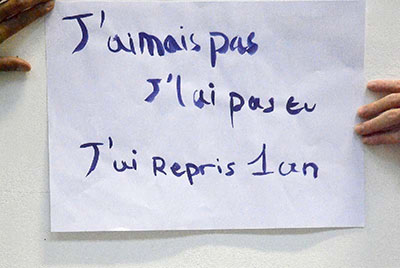 J'aimais pas
J'l'ai pas eu
J'ai Repris 1 an